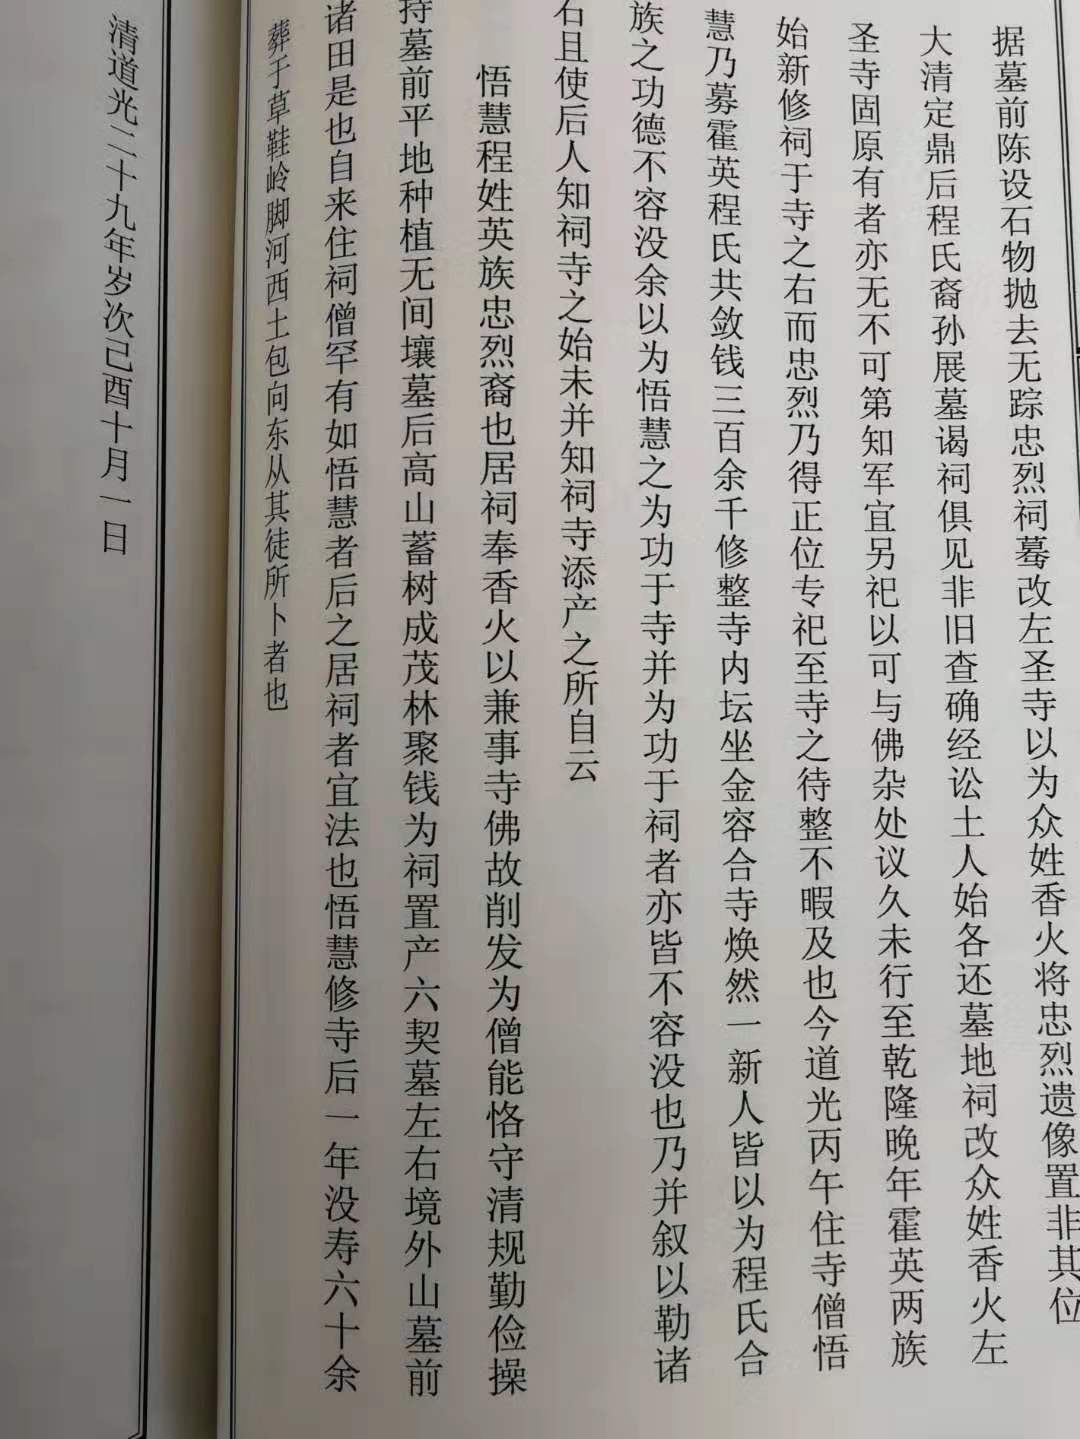 据墓前陈设石物抛去无踪忠烈祠蓦改左圣寺以为众姓香火将忠烈遗像置非其位
大清定鼎后程氏裔孙展墓谒祠俱见非旧查确经讼土人始各还墓地祠改众姓香火左
圣寺固原有者亦无不可第知军宜另祀以可与佛杂处议久未行至乾隆晚年霍英两族
始新修祠于寺之右而忠烈乃得正位专祀至寺之待整不暇及也今道光丙午住寺僧悟
慧乃募霍英程氏共敛钱三百余千修整寺内坛坐金容合寺焕然一新人皆以为程氏合
族之功德不容没余以为悟慧之为功于寺并为功于祠者亦皆不容没也乃并叙以勒诸
石且使后人知祠寺之始末并知祠寺添产之所自云
悟慧程姓英族忠烈裔也居祠奉香火以兼事寺佛故削发为僧能恪守清规勤俭操
持墓前平地种植无间壤墓后高山蓄树成茂林聚钱为祠置产六契墓左右境外山墓前
诸田是也自来住祠僧罕有如悟慧者后之居祠者宜法也悟慧修寺后一年没寿六十余
葬于草鞋岭脚河西土包向东从其徒所卜者也
清道光二十九年岁次己酉十月一日